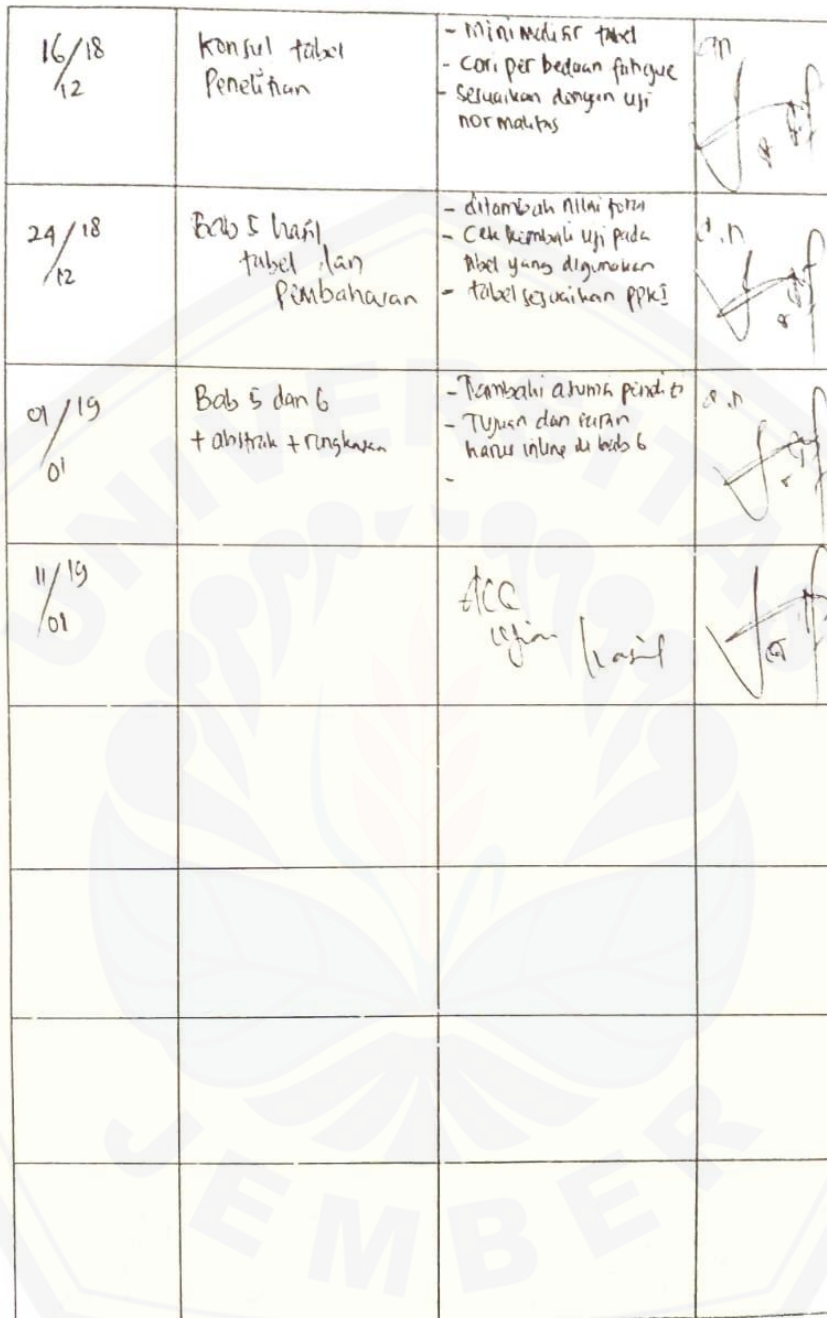 16/18
12
Konsul tabel
Penelitian
- Minimalisir tabel
- Cari perbedaan fatigue
- Sesuaikan dengan uji
normalitas
a.n
24/18
12
Bab 5 hasil
tabel dan
Pembahasan
- ditambah nilai
- Cek kembali uji pada
tabel yang digunakan
- tabel sesuaikan PPKI
a.n
01/19
01
Bab 5 dan 6
+ abstrak + ringkasan
- Tambahi asumsi peneliti
- Tujuan dan saran
harus inline di bab 6
-
a.n
11/19
01
ACC
ujian hasil
UNIVERSITAS
JEMBER